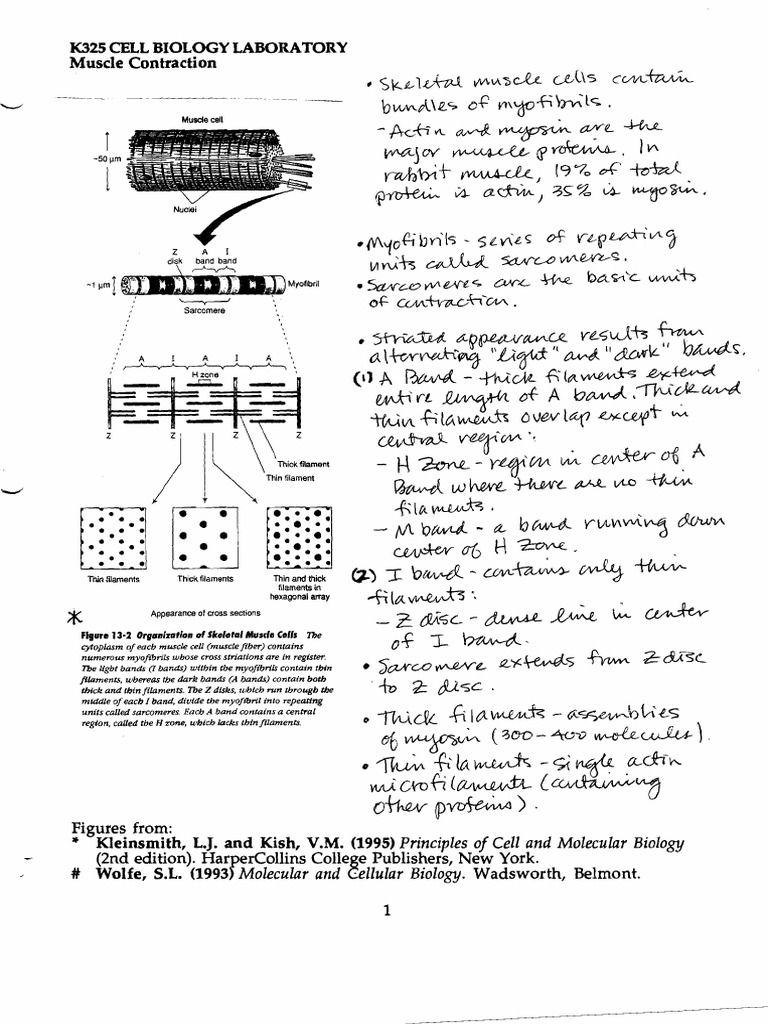 K325 CELL BIOLOGY LABORATORY
Muscle Contraction
Muscle cell
~50 µm
Nuclei
Z disk
A band
I band
~1 µm
Myofibril
Sarcomere
A I A I A
H zone
Z Z Z Z
Thick filament
Thin filament
Thin filaments
Thick filaments
Thin and thick
filaments in
hexagonal array
Appearance of cross sections
*
Figure 13-2 Organization of Skeletal Muscle Cells The
cytoplasm of each muscle cell (muscle fiber) contains
numerous myofibrils whose cross striations are in register.
The light bands (I bands) within the myofibrils contain thin
filaments, whereas the dark bands (A bands) contain both
thick and thin filaments. The Z disks, which run through the
middle of each I band, divide the myofibril into repeating
units called sarcomeres. Each A band contains a central
region, called the H zone, which lacks thin filaments.
• Skeletal muscle cells contain
bundles of myofibrils.
- Actin and myosin are the
major muscle proteins. In
rabbit muscle, 19% of total
protein is actin, 35% is myosin.
• Myofibrils - series of repeating
units called sarcomeres.
• Sarcomeres are the basic units
of contraction.
• Striated appearance results from
alternating "light" and "dark" bands.
(1) A Band - thick filaments extend
entire length of A band. Thick and
thin filaments overlap except in
central region:
- H Zone - region in center of A
Band where there are no thin
filaments.
- M band - a band running down
center of H Zone.
(2) I band - contains only thin
filaments:
- Z disc - dense line in center
of I band.
• Sarcomere extends from Z disc
to Z disc.
• Thick filaments - assemblies
of myosin (300-400 molecules).
• Thin filaments - single actin
microfilaments (containing
other proteins).
Figures from:
* Kleinsmith, L.J. and Kish, V.M. (1995) Principles of Cell and Molecular Biology
(2nd edition). HarperCollins College Publishers, New York.
# Wolfe, S.L. (1993) Molecular and Cellular Biology. Wadsworth, Belmont.
1